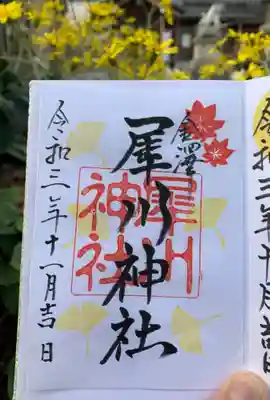 金澤
犀川神社
犀川
神社
令和三年十一月吉日
令和三年十月吉日